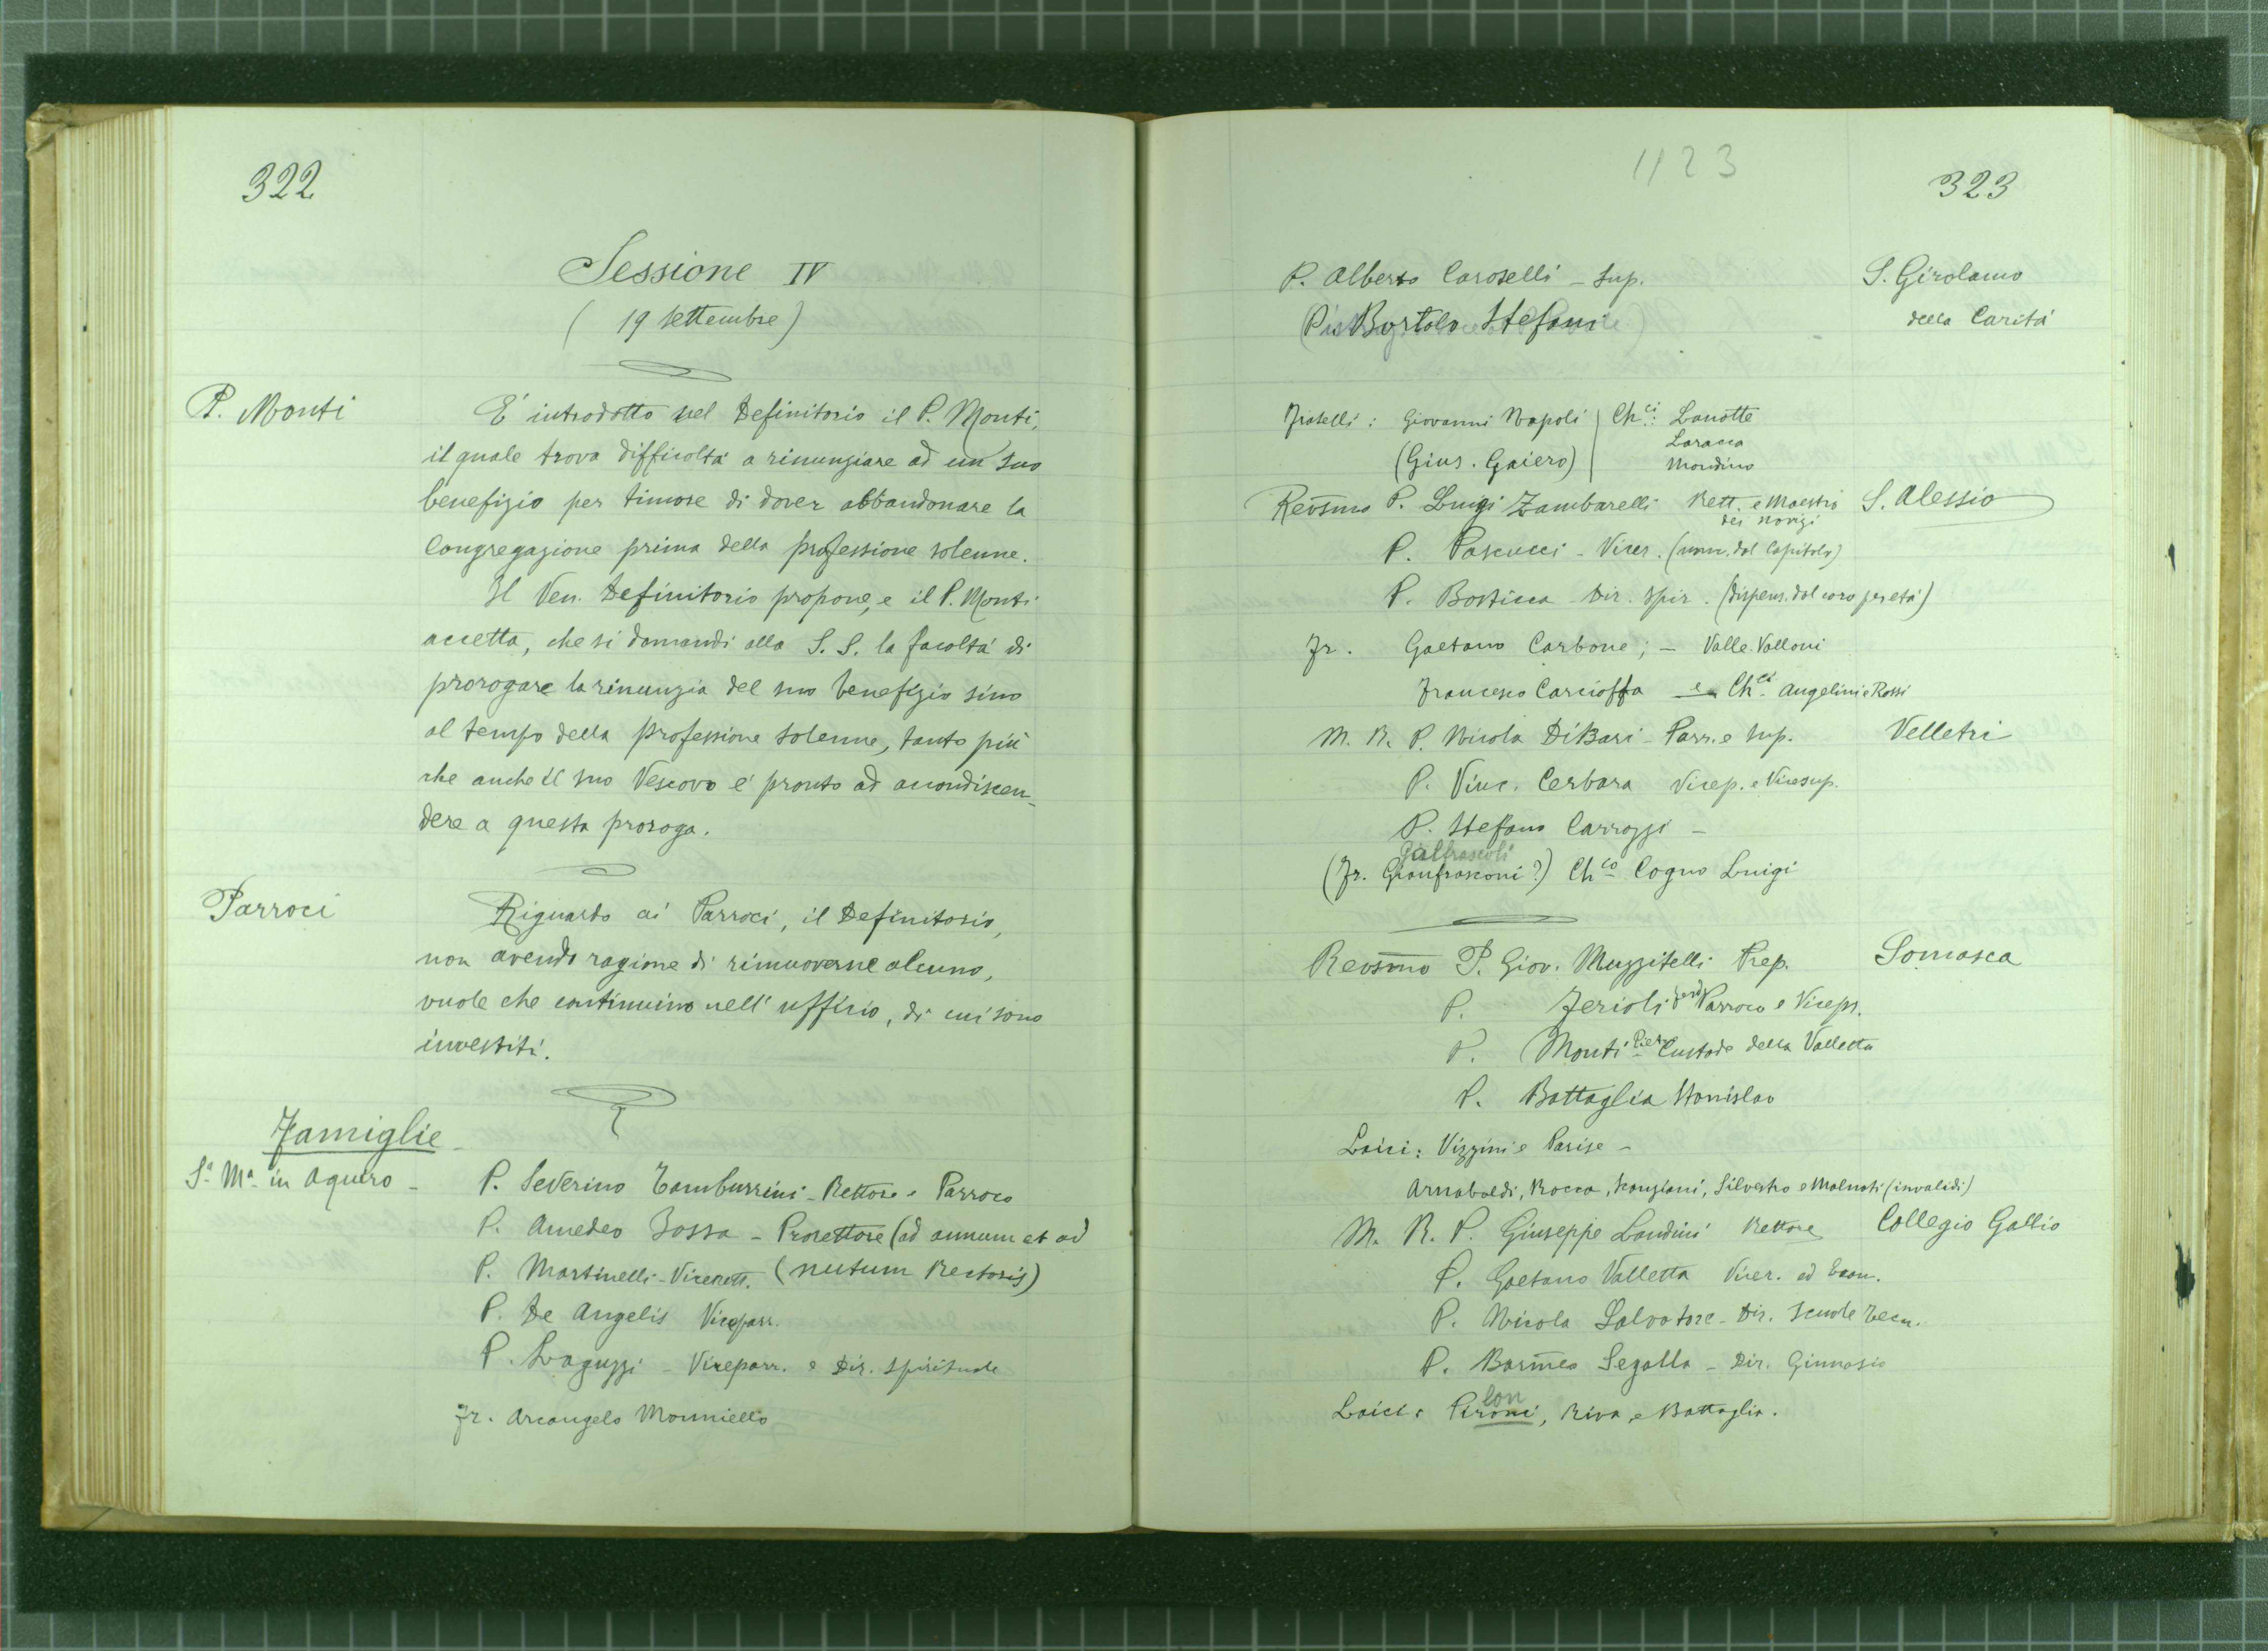 322
Sessione IV
(19 settembre)
P. Monti
E' introdotto nel Definitorio il P. Monti,
il quale trova difficoltà a rinunziare ad un suo
benefizio per timore di dover abbandonare la
Congregazione prima della professione solenne.
Il Ven. Definitorio propone, e il P. Monti
accetta, che si domandi alla S. S. la facoltà di
prorogare la rinunzia del suo benefizio sino
al tempo della professione solenne, tanto più
che anche il suo Vescovo è pronto ad accondiscen-
dere a questa proroga.
Parroci
Riguardo ai Parroci, il Definitorio,
non avendo ragione di rimuoverne alcuno,
vuole che continuino nell'ufficio, di cui sono
investiti.
Famiglie
Sa Ma in Aquiro -
P. Severino Tamburrini - Rettore e Parroco
P. Amedeo Bossa - Prorettore (ad annum et ad
P. Martinelli - Vicerett. (nutum Rectoris)
P. De Angelis Viceparr.
P. Laguzzi - Viceparr. e Dir. Spirituale
Fr. Arcangelo Monniello
1123
323
P. Alberto Caroselli - Sup.
S. Girolamo
della Carità
Bortolo Stefani
Fratelli: Giovanni Napoli | Chci: Lanotte
Laracca
(Gius. Gaiero) | Mondino
Revsmo P. Luigi Zambarelli Rett. e Maestro
dei novizi
S. Alessio
P. Pascucci - Vicer. (nom. dal Capitolo)
P. Bosticca - Dir. Spir. (dispens. dal coro per età)
Fr. Gaetano Carbone; - Valle. Valloni
Francesco Carcioffa e Chci Angelini e Rossi
M. R. P. Nicola DiBari - Parr. e Sup.
Velletri
P. Vinc. Cerbara Vicep. e Vicesup.
P. Stefano Carrozzi -
Galfrascoli
(Fr. Gianfrasconi?) Chco Cogno Luigi
Revsmo P. Giov. Muzzitelli Prep.
Somasca
P. Ferioli Ferd Parroco e Vicepr.
P. Monti Piet Custode della Valletta
P. Battaglia Stanislao
Laici: Vizzini e Parise -
Arnaboldi, Rocca, Scanziani, Silvestro e Malnati (invalidi)
M. R. P. Giuseppe Landini Rettore
Collegio Gallio
P. Gaetano Valletta Vicer. ed Econ.
P. Nicola Salvatore - Dir. Scuole Tecn.
P. Barmeo Segalla - Dir. Ginnasio
lon
Laici: Pironi, Riva, e Battaglia.